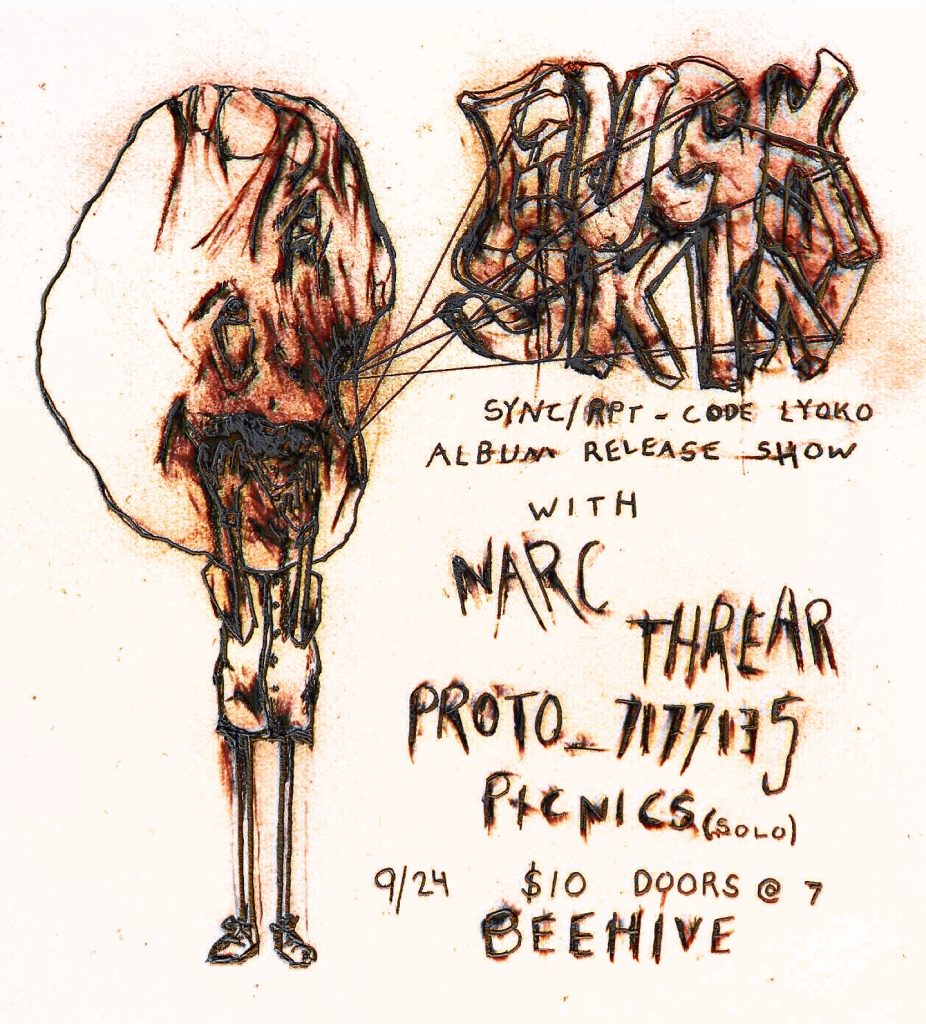 SKIN
SYNC/RPT - CODE LYOKO
ALBUM RELEASE SHOW
WITH
NARC
THREAR
PROTO_7177135
PICNICS (SOLO)
9/24 $10 DOORS @ 7
BEEHIVE